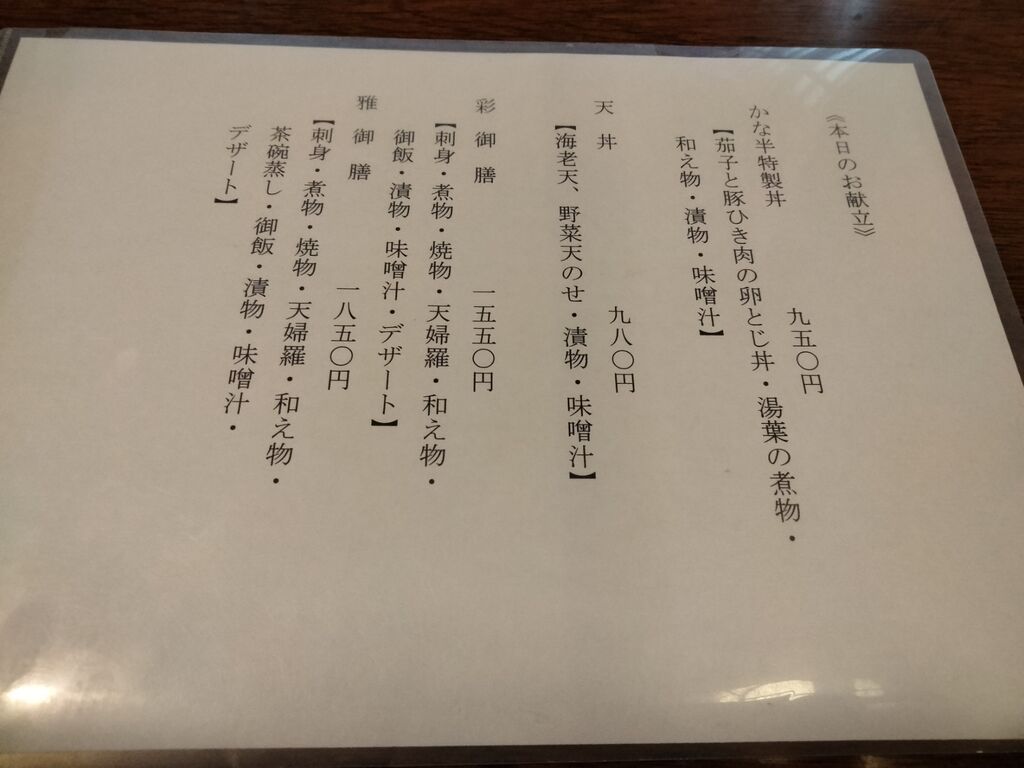 《本日のお献立》
かな半特製丼　九五〇円
【茄子と豚ひき肉の卵とじ丼・湯葉の煮物・
和え物・漬物・味噌汁】
天丼　九八〇円
【海老天、野菜天のせ・漬物・味噌汁】
彩御膳　一五五〇円
【刺身・煮物・焼物・天婦羅・和え物・
御飯・漬物・味噌汁・デザート】
雅御膳　一八五〇円
【刺身・煮物・焼物・天婦羅・和え物・
茶碗蒸し・御飯・漬物・味噌汁・
デザート】